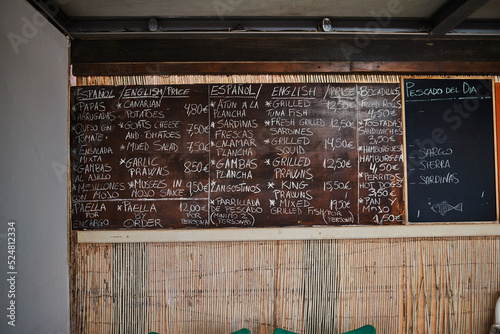 ESPAÑOL / ENGLISH / PRICE
* PAPAS ARRUGADAS
* CANARIAN POTATOES 4,80€
* QUESO CON TOMATE
* GOATS CHEESE AND TOMATOES 7,50€
* ENSALADA MIXTA
* MIXED SALAD 7,50€
* GAMBAS AL AJILLO
* GARLIC PRAWNS 8,50€
* MEJILLONES CON MOJO
* MUSSELS IN MOJO SAUCE 9,50€
PAELLA POR ENCARGO
* PAELLA BY ORDER 12,00€
POR PERSONA
ESPAÑOL / ENGLISH / PRICE
* ATÚN A LA PLANCHA
* GRILLED TUNA FISH 12,50€
* SARDINAS FRESCAS
* FRESH GRILLED SARDINES
* CALAMAR PLANCHA
* GRILLED SQUID 14,50€
* GAMBAS PLANCHA
* GRILLED PRAWNS 12,50€
LANGOSTINOS
* KING PRAWNS 15,50€
* PARRILLADA DE PESCADO
* MIXED GRILLED FISH
BOCADILLOS
SANDWICHES
* TOSTADAS
* HAMBURGER
* PERRITOS
HOT DOGS
* PAN
MOJO
PESCADO DEL DIA
SARGO
SIERRA
SARDINAS